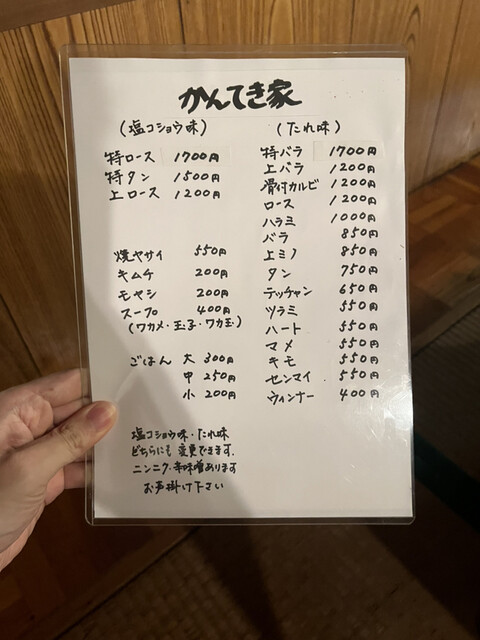 かんてき家
(塩コショウ味)
特ロース 1700円
特タン 1500円
上ロース 1200円
焼ヤサイ 550円
キムチ 200円
モヤシ 200円
スープ 400円
(ワカメ・玉子・ワカ玉)
ごはん 大 300円
中 250円
小 200円
(たれ味)
特バラ 1700円
上バラ 1200円
骨付カルビ 1200円
ロース 1200円
ハラミ 1000円
バラ 850円
上ミノ 850円
タン 750円
テッチャン 650円
ツラミ 550円
ハート 550円
マメ 550円
キモ 550円
センマイ 550円
ウィンナー 400円
塩コショウ味・たれ味
どちらにも変更できます.
ニンニク・辛味噌あります
お声掛け下さい